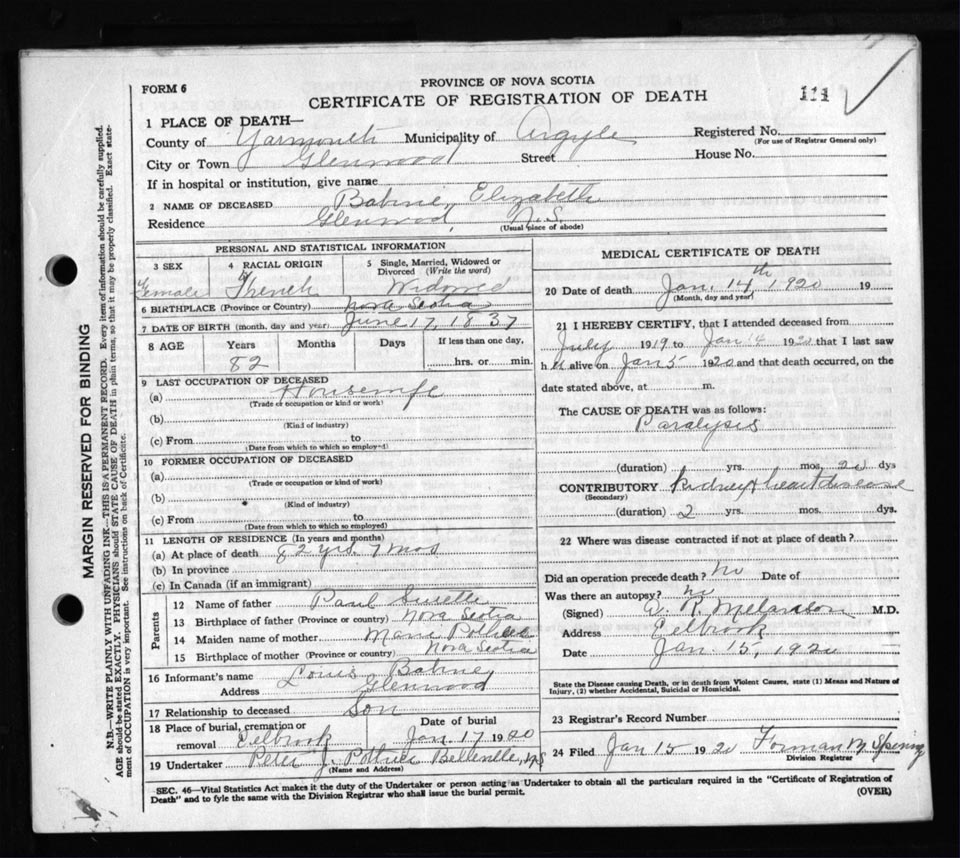 FORM 6
PROVINCE OF NOVA SCOTIA
CERTIFICATE OF REGISTRATION OF DEATH
111
1 PLACE OF DEATH—
County of Yarmouth Municipality of Argyle Registered No.
(For use of Registrar General only)
City or Town Glenwood Street House No.
If in hospital or institution, give name
2 NAME OF DECEASED Babine, Elizabeth
Residence Glenwood, N.S.
(Usual place of abode)
PERSONAL AND STATISTICAL INFORMATION
3 SEX Female
4 RACIAL ORIGIN French
5 Single, Married, Widowed or Divorced (Write the word) Widowed
6 BIRTHPLACE (Province or Country) Nova Scotia
7 DATE OF BIRTH (month, day and year) June 17, 1837
8 AGE Years Months Days If less than one day,
82 hrs. or min.
9 LAST OCCUPATION OF DECEASED
(a) Housewife
(Trade or occupation or kind or work)
(b)
(Kind of industry)
(c) From to
(Date from which to which so employed)
10 FORMER OCCUPATION OF DECEASED
(a)
(Trade or occupation or kind of work)
(b)
(Kind of industry)
(c) From to
(Date from which to which so employed)
11 LENGTH OF RESIDENCE (In years and months)
(a) At place of death 82 yrs. 7 mos
(b) In province
(c) In Canada (if an immigrant)
Parents
12 Name of father Paul Surette
13 Birthplace of father (Province or Country) Nova Scotia
14 Maiden name of mother Marie
15 Birthplace of mother (Province or country) Nova Scotia
16 Informant's name Louis Babine
Address Glenwood
17 Relationship to deceased Son
18 Place of burial, cremation or removal Eelbrook Date of burial Jan 17 1920
19 Undertaker Peter J. Pothier Belleville, N.S
(Name and Address)
MEDICAL CERTIFICATE OF DEATH
20 Date of death Jan. 14th, 1920 19
(Month, day and year)
21 I HEREBY CERTIFY, that I attended deceased from
July 1919 to Jan 14 1920 that I last saw
h alive on Jan 5 1920 and that death occurred, on the
date stated above, at m.
The CAUSE OF DEATH was as follows:
Paralysis
(duration) yrs. mos. 20 dys
CONTRIBUTORY Kidney & heart disease
(Secondary)
(duration) 2 yrs. mos. dys.
22 Where was disease contracted if not at place of death?
Did an operation precede death? No Date of
Was there an autopsy? No
(Signed) W. R. Melanson M.D.
Address Eelbrook
Date Jan 15, 1920
State the Disease causing Death, or in death from Violent Causes, state (1) Means and Nature of
Injury, (2) whether Accidental, Suicidal or Homicidal.
23 Registrar's Record Number
24 Filed Jan 15 1920 Forman
Division Registrar
SEC. 46—Vital Statistics Act makes it the duty of the Undertaker or person acting as Undertaker to obtain all the particulars required in the "Certificate of Registration of
Death" and to fyle the same with the Division Registrar who shall issue the burial permit. (OVER)
MARGIN RESERVED FOR BINDING
N.B.—WRITE PLAINLY WITH UNFADING INK—THIS IS A PERMANENT RECORD. Every item of information should be carefully supplied.
AGE should be stated EXACTLY. PHYSICIANS should STATE CAUSE OF DEATH in plain terms, so that it may be properly classified. Exact state-
ment of OCCUPATION is very important. See instructions on back of Certificate.